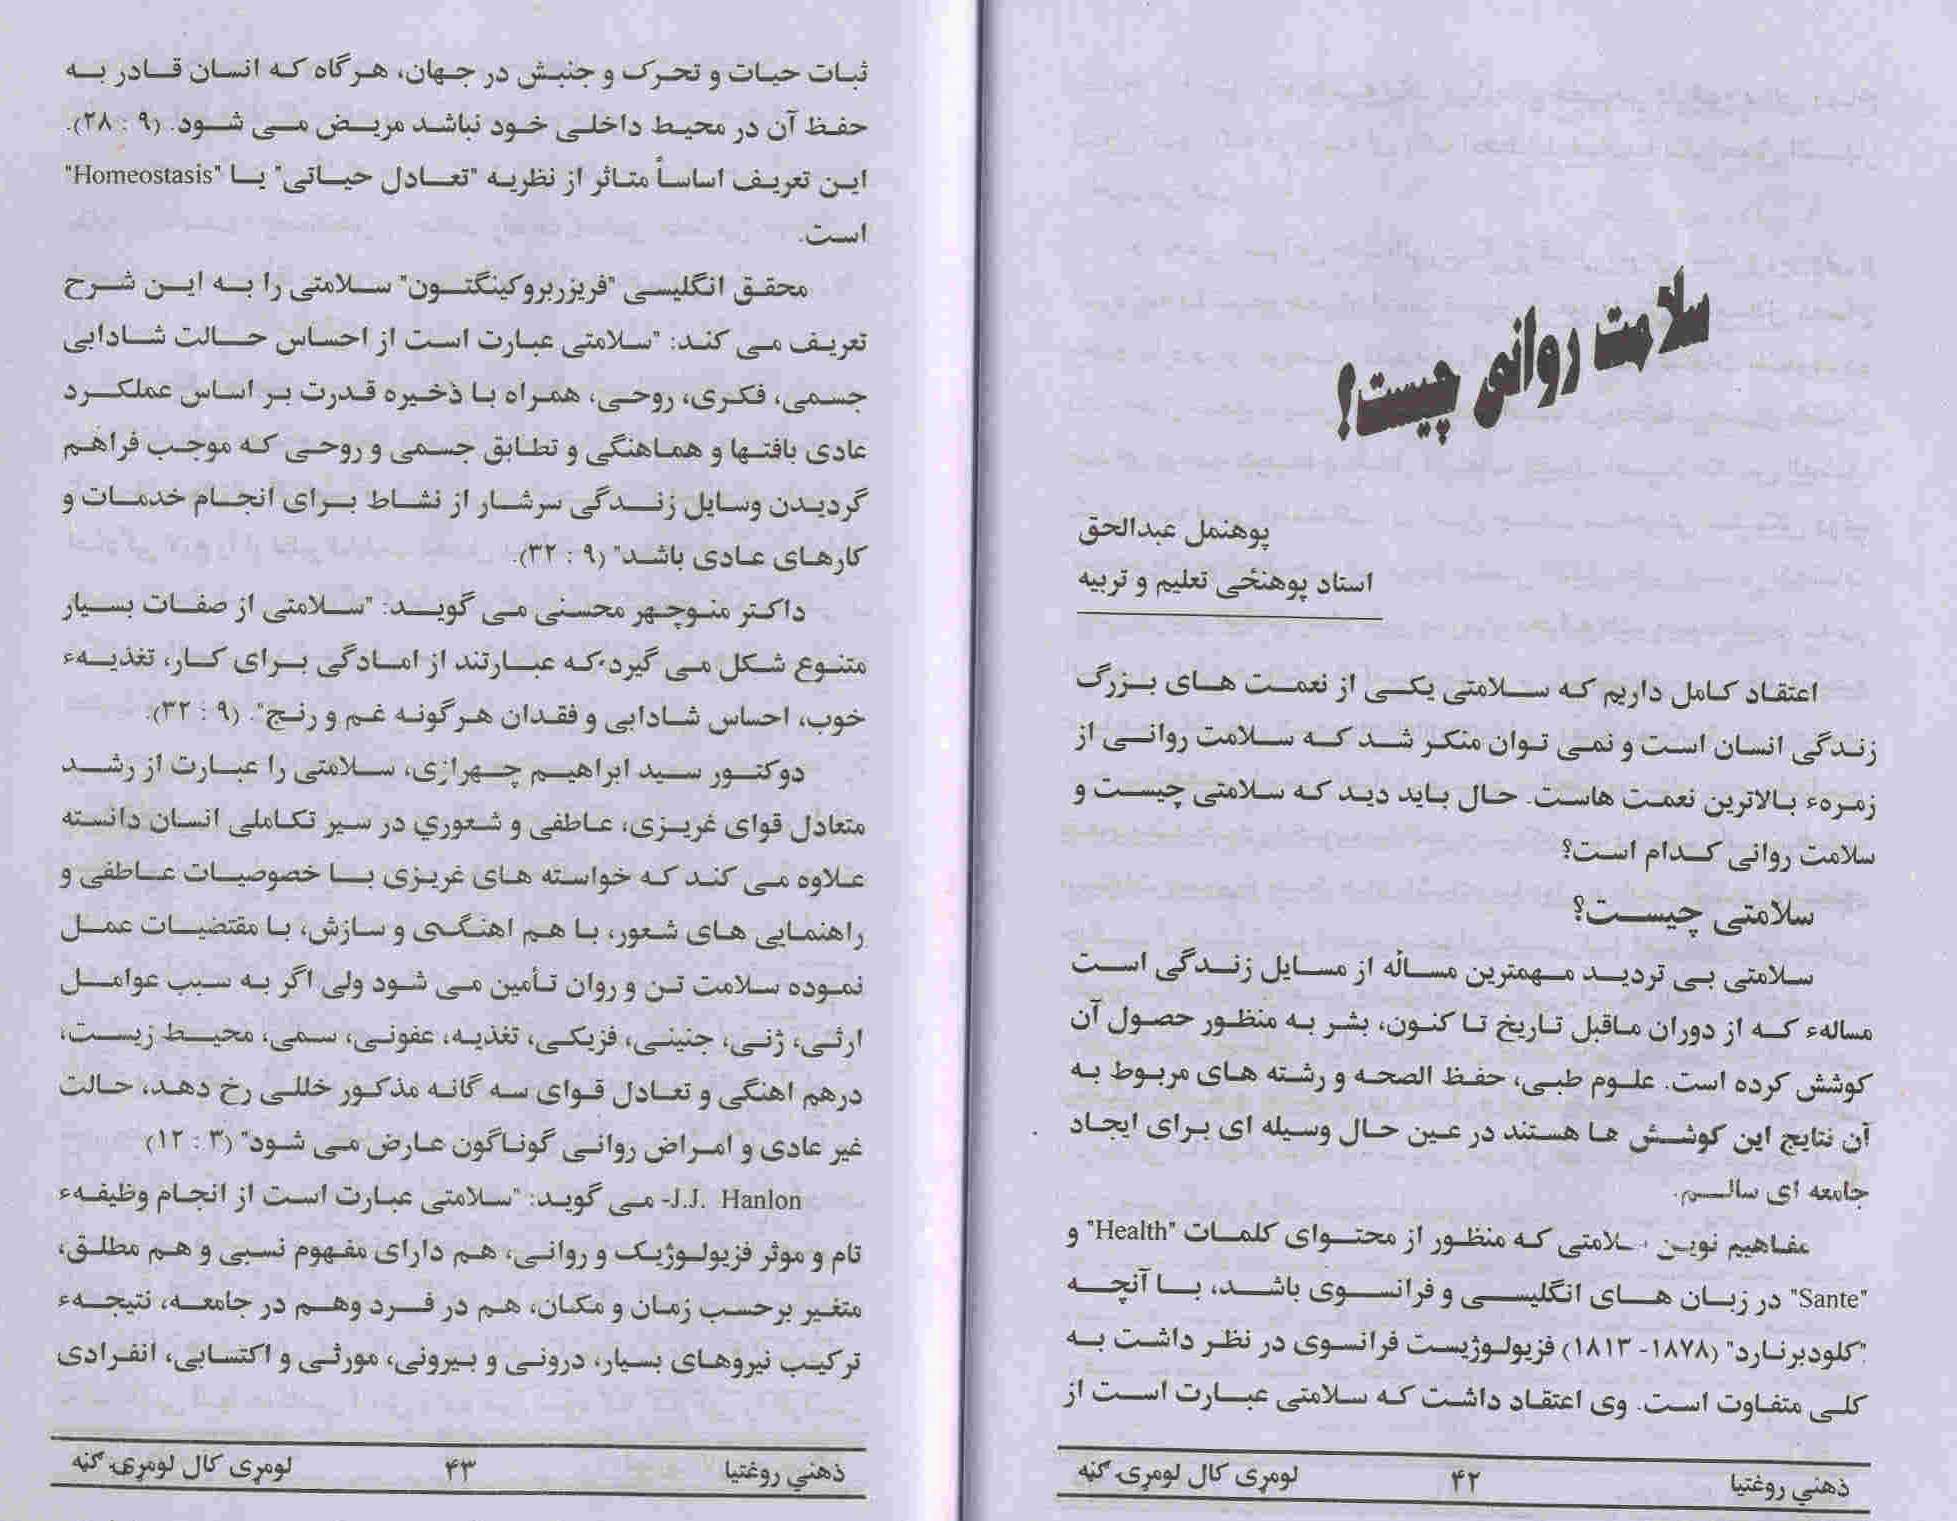 سلامت روانی چیست؟
پوهنمل عبدالحق
استاد پوهنځی تعلیم و تربیه
اعتقاد کامل داریم که سلامتی یکی از نعمت های بزرگ
زندگی انسان است و نمی توان منکر شد که سلامت روانی از
زمرهء بالاترین نعمت هاست. حال باید دید که سلامتی چیست و
سلامت روانی کدام است؟
سلامتی چیست؟
سلامتی بی تردید مهمترین مسأله از مسایل زندگی است
مسالهء که از دوران ماقبل تاریخ تا کنون، بشر به منظور حصول آن
کوشش کرده است. علوم طبی، حفظ الصحه و رشته های مربوط به
آن نتایج این کوشش ها هستند در عین حال وسیله ای برای ایجاد
جامعه ای سالم.
مفاهیم نوین سلامتی که منظور از محتوای کلمات "Health" و
"Sante" در زبان های انگلیسی و فرانسوی باشد، با آنچه
"کلودبرنارد" (۱۸۷۸- ۱۸۱۳) فزیولوژیست فرانسوی در نظر داشت به
کلی متفاوت است. وی اعتقاد داشت که سلامتی عبارت است از
ذهني روغتیا ۴۲ لومړی کال لومړۍ ګڼه
ثبات حیات و تحرک و جنبش در جهان، هرگاه که انسان قادر به
حفظ آن در محیط داخلی خود نباشد مریض می شود. (۹ : ۲۸).
این تعریف اساساً متاثر از نظریه "تعادل حیاتی" یا "Homeostasis"
است.
محقق انگلیسی "فریزربروکینگتون" سلامتی را به این شرح
تعریف می کند: "سلامتی عبارت است از احساس حالت شادابی
جسمی، فکری، روحی، همراه با ذخیره قدرت بر اساس عملکرد
عادی بافتها و هماهنگی و تطابق جسمی و روحی که موجب فراهم
گردیدن وسایل زندگی سرشار از نشاط برای انجام خدمات و
کارهای عادی باشد" (۹ : ۳۲).
داکتر منوچهر محسنی می گوید: "سلامتی از صفات بسیار
متنوع شکل می گیرد که عبارتند از امادگی برای کار، تغذیهء
خوب، احساس شادابی و فقدان هرگونه غم و رنج". (۹ : ۳۲).
دوکتور سید ابراهیم چهرازی، سلامتی را عبارت از رشد
متعادل قوای غریزی، عاطفی و شعوري در سیر تکاملی انسان دانسته
علاوه می کند که خواسته های غریزی با خصوصیات عاطفی و
راهنمایی های شعور، با هم اهنگی و سازش، با مقتضیات عمل
نموده سلامت تن و روان تأمین می شود ولی اگر به سبب عوامل
ارثی، ژنی، جنینی، فزیکی، تغذیه، عفونی، سمی، محیط زیست،
درهم اهنگی و تعادل قوای سه گانه مذکور خللی رخ دهد، حالت
غیر عادی و امراض روانی گوناگون عارض می شود" (۳ : ۱۲)
J.J. Hanlon- می گوید: "سلامتی عبارت است از انجام وظیفهء
تام و موثر فزیولوژیک و روانی، هم دارای مفهوم نسبی و هم مطلق،
متغیر برحسب زمان و مکان، هم در فرد وهم در جامعه، نتیجهء
ترکیب نیروهای بسیار، درونی و بیرونی، مورثی و اکتسابی، انفرادی
ذهني روغتیا ۴۳ لومړی کال لومړۍ ګڼه